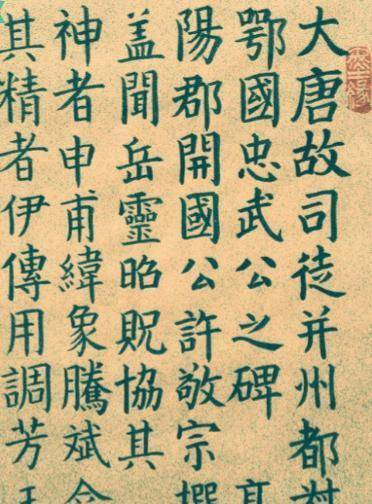 大唐故司徒并州都
鄂國忠武公之碑
陽郡開國公許敬宗撰
盖聞岳靈昭貺協其
神者申甫緯象騰斌
其精者伊傳用調芳